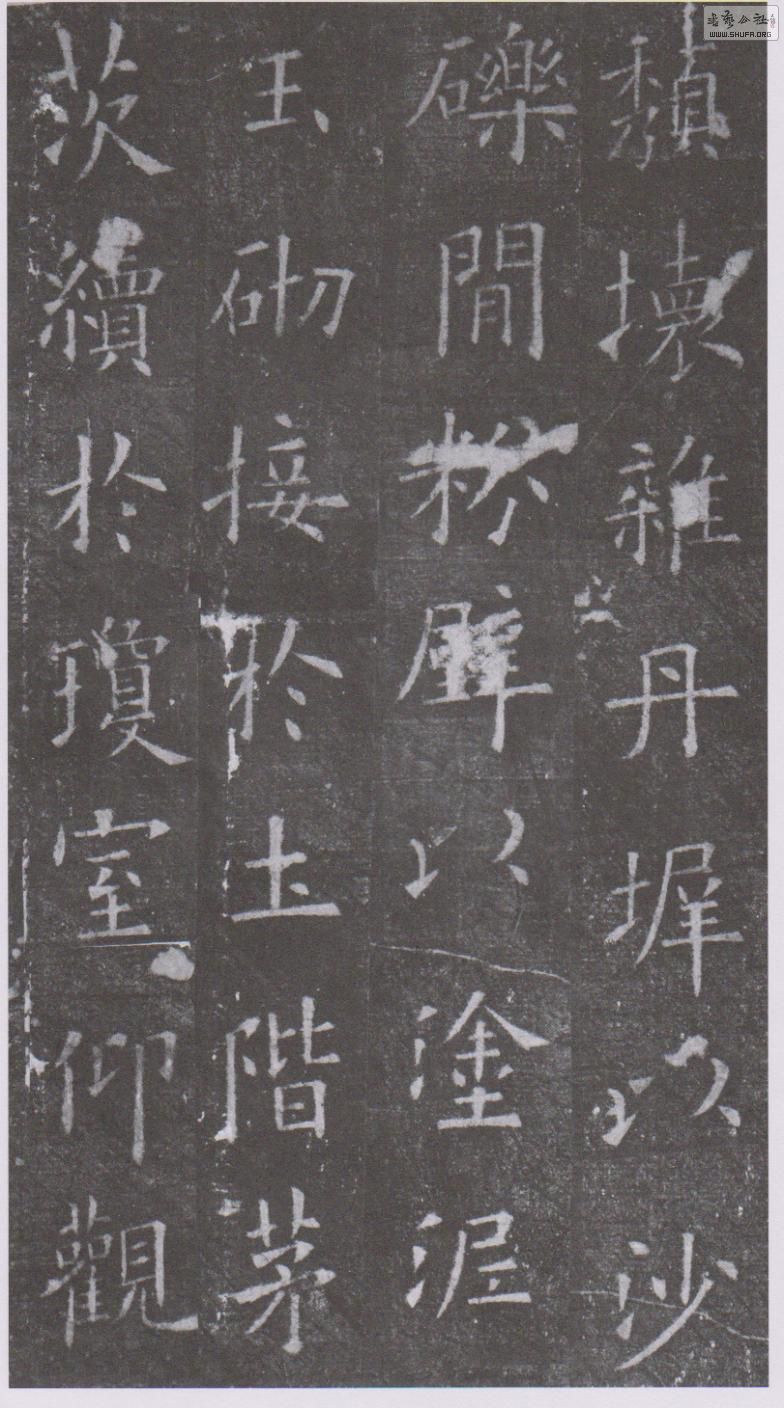 頹壞雜丹墀以沙
礫間粉壁以塗泥
玉砌接於土階茅
茨續於瓊室仰觀
书艺公社
WWW.SHUFA.ORG